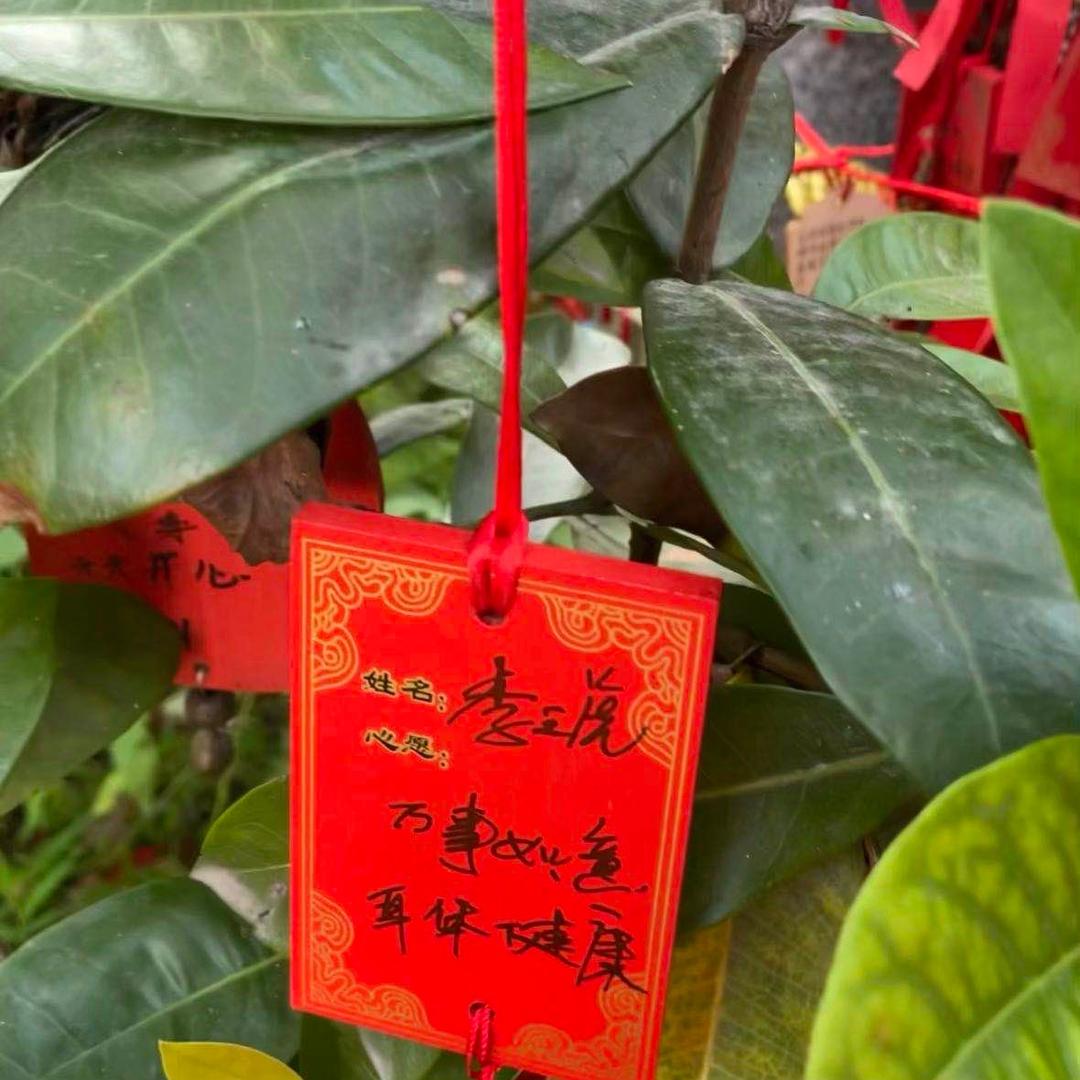 开心
姓名：李
心愿：
万事如意
身体健康